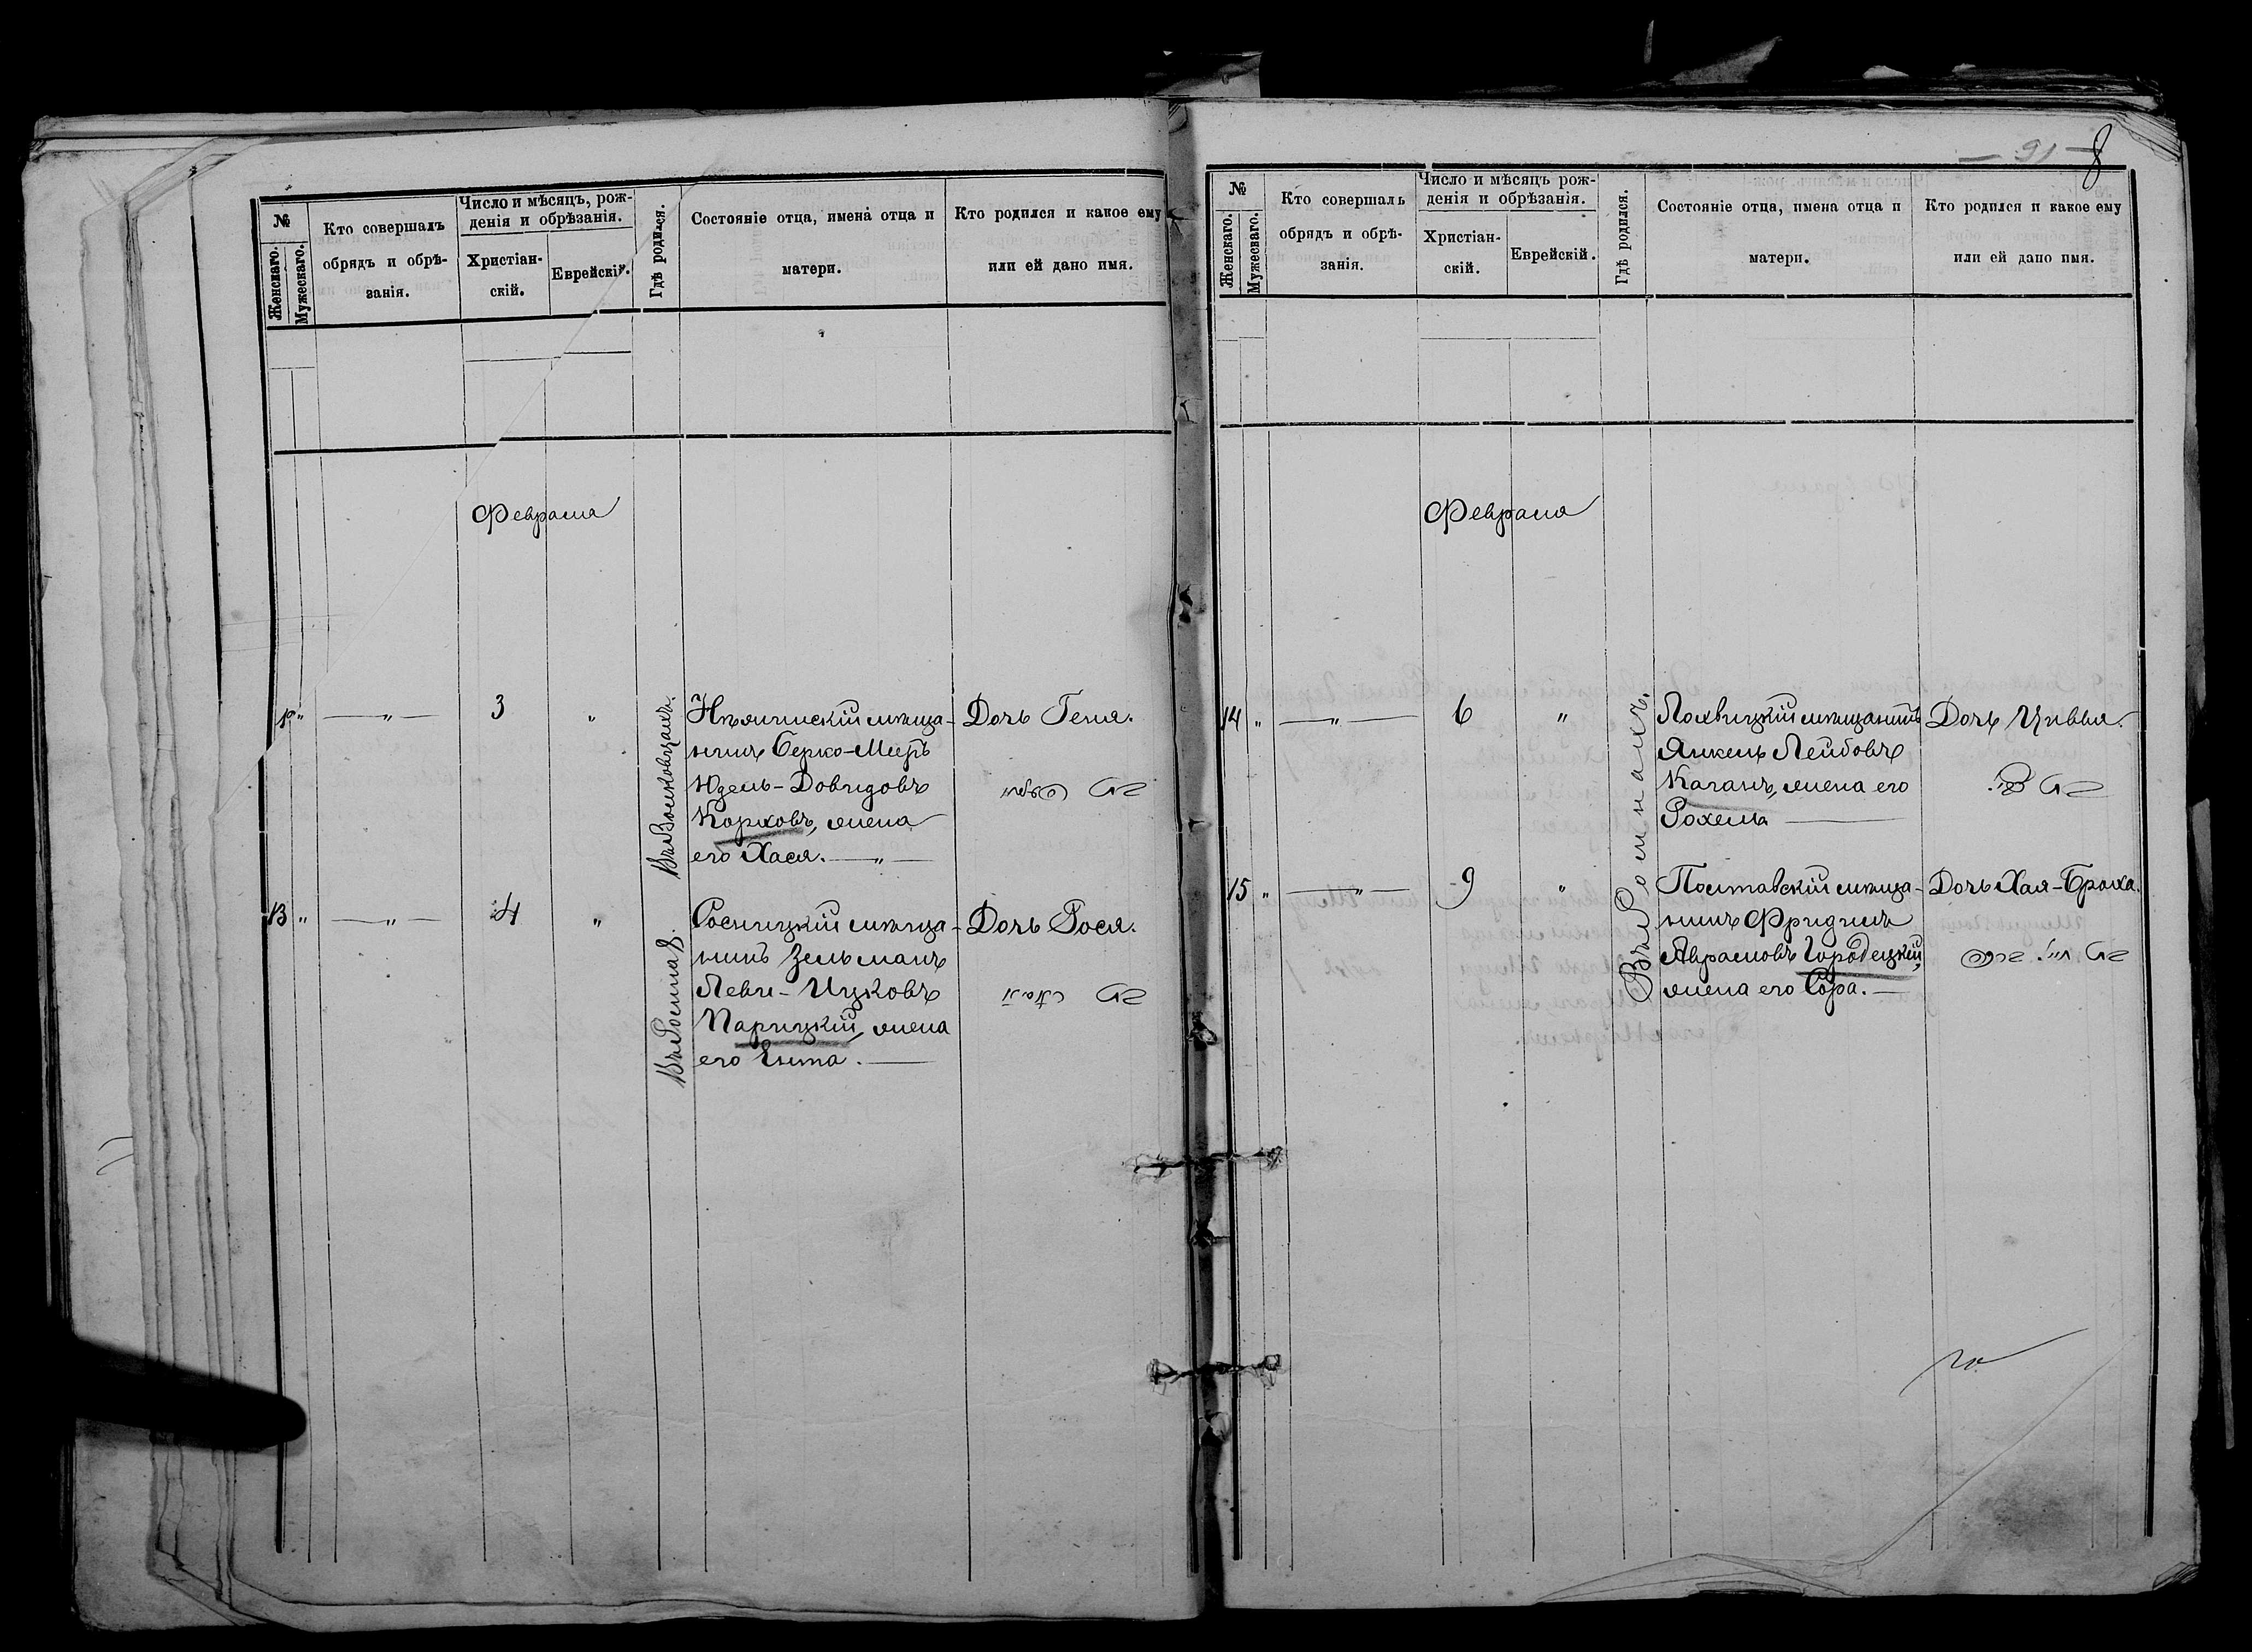 №
Женскаго.
Мужескаго.
Кто совершалъ
обрядъ и обрѣ-
занія.
Число и мѣсяцъ, рож-
денія и обрѣзанія.
Христіан-
скій.
Еврейскій.
Гдѣ родился.
Состояніе отца, имена отца и
матери.
Кто родился и какое ему
или ей дано имя.
Февраля
12 " — " — 3 "
Нѣжинскій мѣща-
нинъ Берко-Мееръ
Юдель-Довидовъ
Коржовъ, жена
его Хася. — " —
Дочь Геня.
13 " — " — 4 "
Въ Ромнах.
Росницкій мѣща-
нинъ Зельманъ
Леви-Ицковъ
Парицкій, жена
его Ента. —
Дочь Рося.
— 91 —
8
№
Женскаго.
Мужескаго.
Кто совершалъ
обрядъ и обрѣ-
занія.
Число и мѣсяцъ рож-
денія и обрѣзанія.
Христіан-
скій.
Еврейскій.
Гдѣ родился.
Состояніе отца, имена отца и
матери.
Кто родился и какое ему
или ей дано имя.
Февраля
14 " — " — 6 "
Въ Ромнахъ.
Лохвицкій мѣщанинъ
Янкель Лейбовъ
Каганъ, жена его
Рохеля —
Дочь Цивья.
15 " — " — 9 "
Полтавскій мѣща-
нинъ Фридель
Абрамовъ Городецкій,
жена его Сора. —
Дочь Хая-Броха.